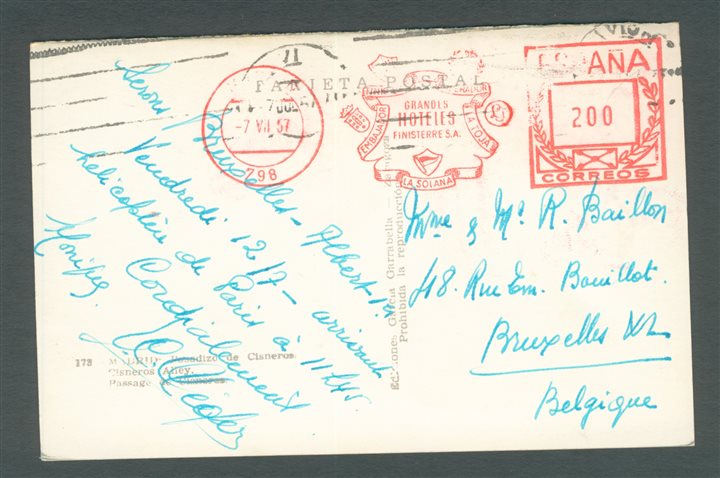 TARJETA POSTAL
-7 VII 57
798
GRANDES
HOTELES
FINISTERRE S.A.
EMBAJADOR
LA TOJA
LA SOLANA
ESPAÑA
200
CORREOS
Serons Bruxelles - Albert Ier
Vendredi 12/7 - arrivant
hélicoptère de Paris à 11h45
Cordialement
Mme & Mr R. Baillon
48. Rue Em. Bouillot.
Bruxelles XL
Belgique
Ediciones García Garrabella
Prohibida la reproducción
173 MADRID Pasadizo de Cisneros
Cisneros Alley.
Passage de Cisneros